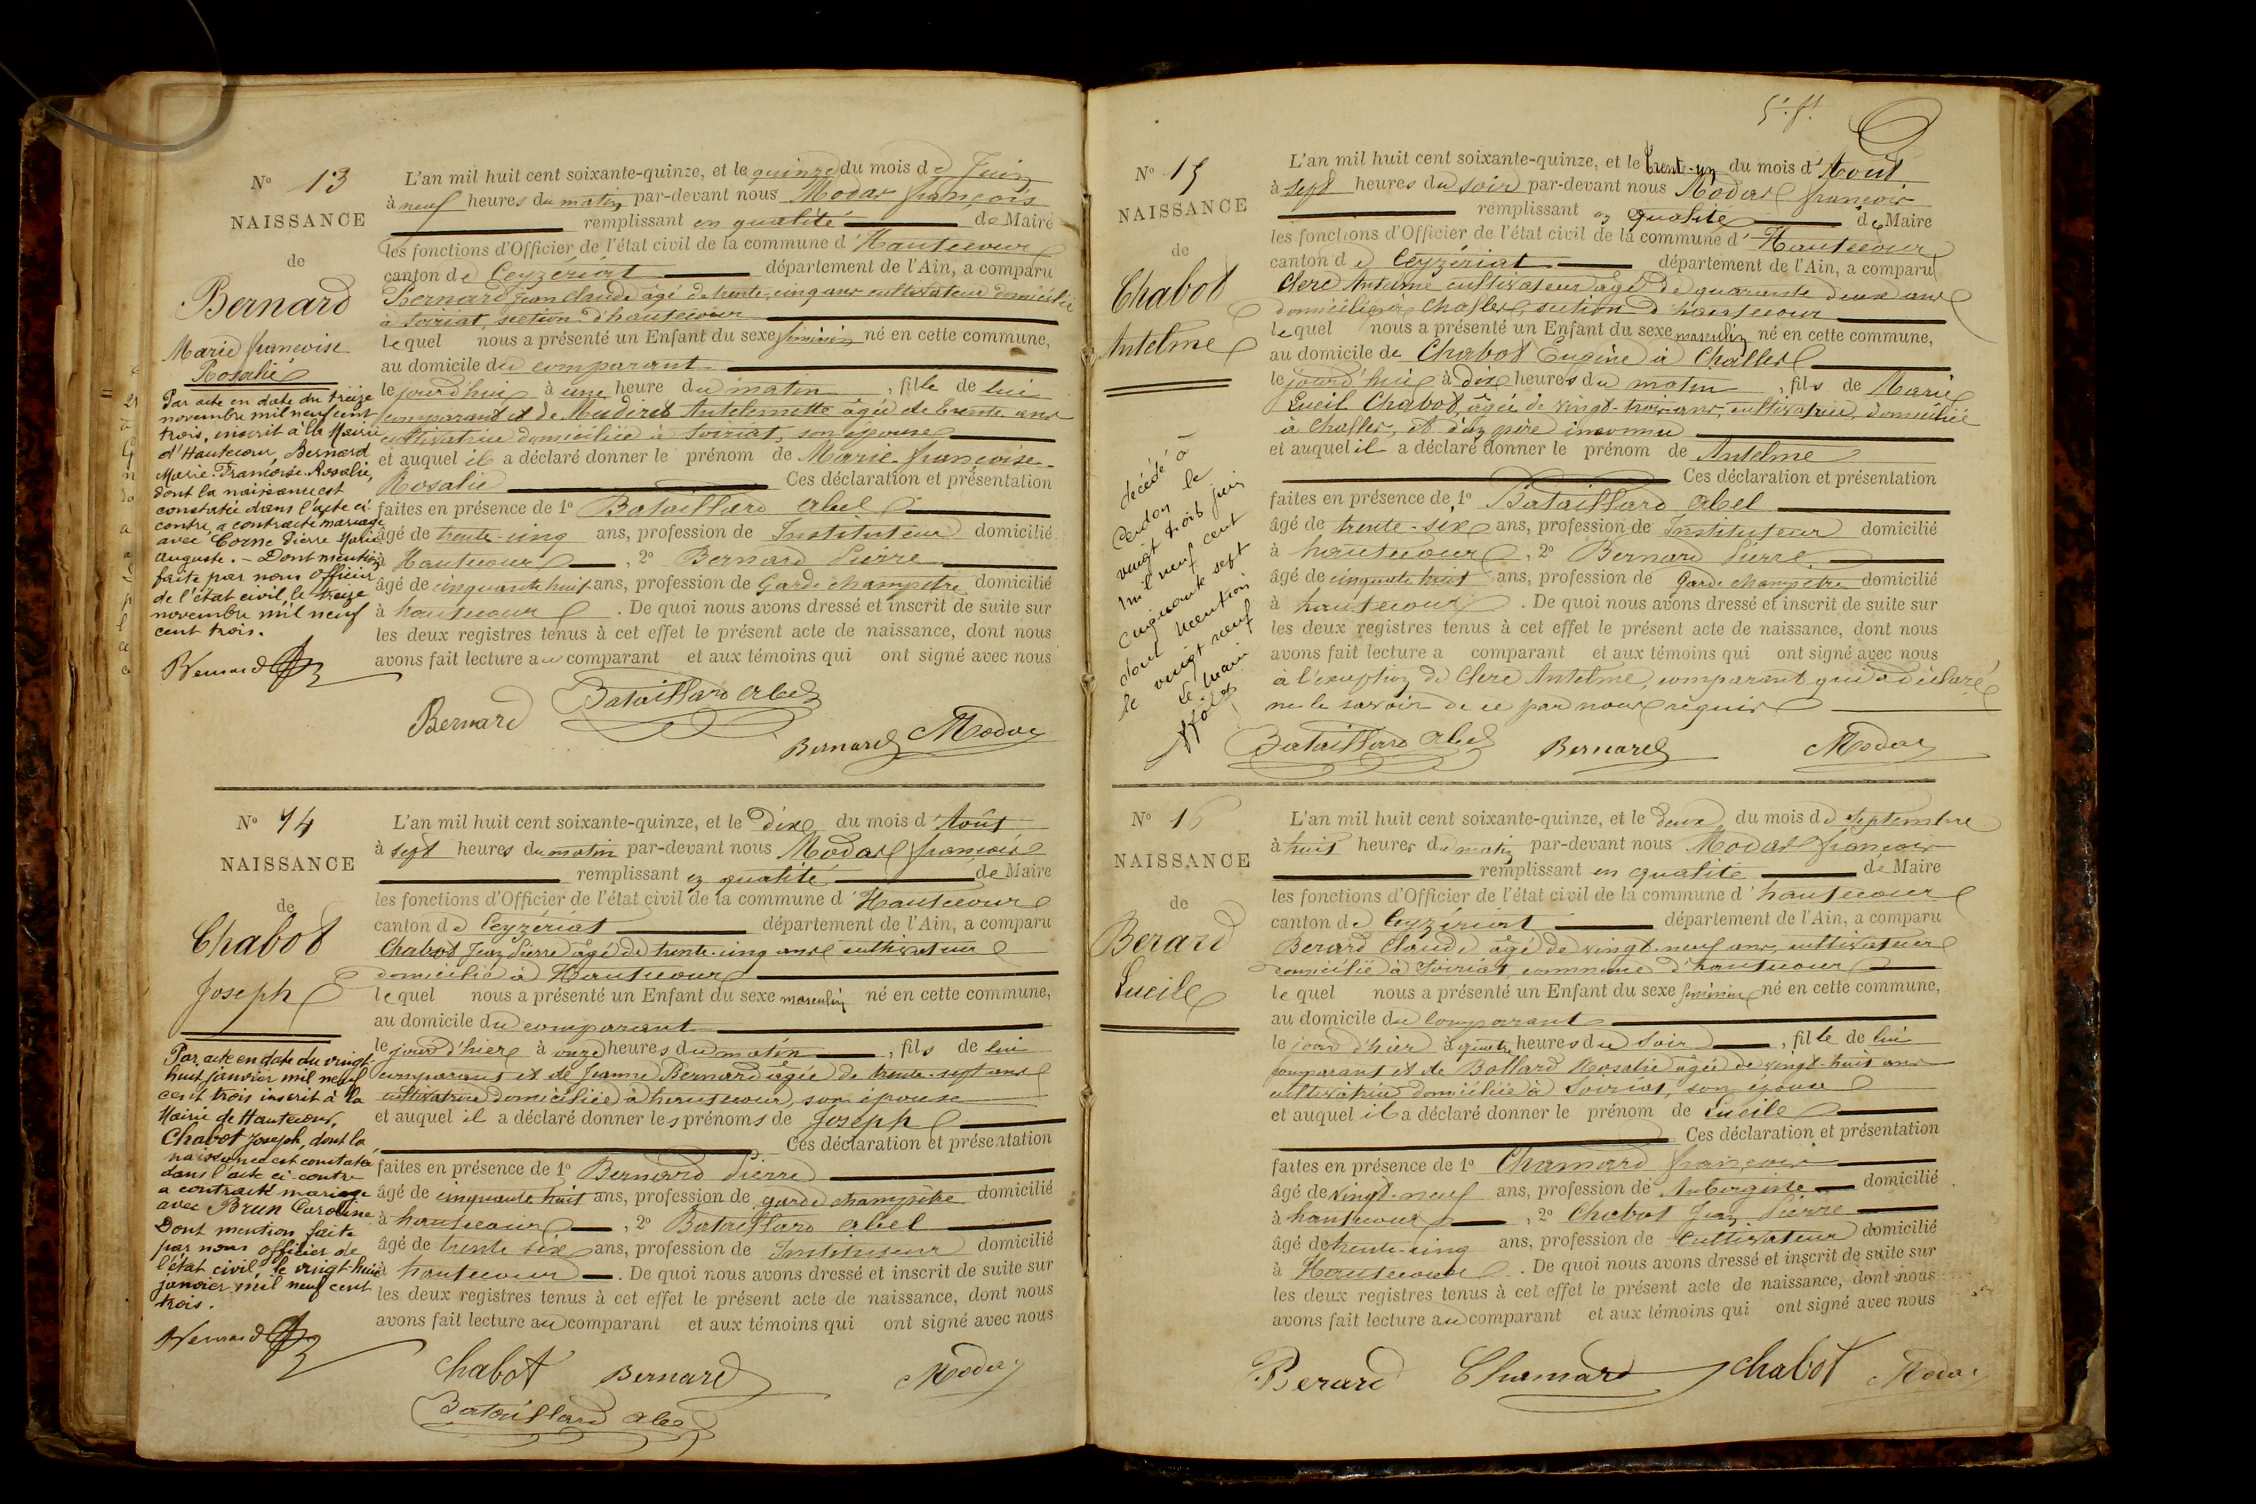 Nº 13
NAISSANCE
de
Bernard
Marie françoise
Rosalie
Par acte en date du treize
novembre mil neuf cent
trois, inscrit à la Mairie
d'Hautecour, Bernard
Marie-Françoise-Rosalie,
dont la naissance est
constatée dans l'acte ci
contre, a contracté mariage
avec Corne Pierre Marie
Auguste. - Dont mention
faite par nous Officier
de l'état civil, le treize
novembre mil neuf
cent trois.
L'an mil huit cent soixante-quinze, et le quinze du mois de Juin
à neuf heures du matin par-devant nous Modas françois
remplissant en qualité de Maire
les fonctions d'Officier de l'état civil de la commune d'Hautecour
canton de Ceyzériat département de l'Ain, a comparu
Bernard Jean Claude âgé de trente-cinq ans cultivateur domicilié
à Soiriat, section d'hautecour
lequel nous a présenté un Enfant du sexe féminin né en cette commune,
au domicile du comparant
le jourd'hui à une heure du matin, fille de lui
comparant et de Antelmette âgée de trente ans
cultivatrice domiciliée à Soiriat, son épouse
et auquel il a déclaré donner le prénom de Marie-françoise-
Rosalie Ces déclaration et présentation
faites en présence de 1º Bataillard Abel
âgé de trente-cinq ans, profession de Instituteur domicilié
à Hautecour, 2º Bernard Pierre
âgé de cinquante huit ans, profession de Garde champêtre domicilié
à hautecour. De quoi nous avons dressé et inscrit de suite sur
les deux registres tenus à cet effet le présent acte de naissance, dont nous
avons fait lecture au comparant et aux témoins qui ont signé avec nous
Bernard Bataillard Abel
Bernard Modas
Nº 14
NAISSANCE
de
Chabot
Joseph
Par acte en date du vingt
huit janvier mil neuf
cent trois inscrit à la
Mairie de Hautecour,
Chabot Joseph, dont la
naissance est constatée
dans l'acte ci-contre
a contracté mariage
avec Brun Caroline
Dont mention faite
par nous officier de
l'état civil, le vingt-huit
janvier mil neuf cent
trois.
L'an mil huit cent soixante-quinze, et le dix du mois d'Août
à sept heures du matin par-devant nous Modas françois
remplissant en qualité de Maire
les fonctions d'Officier de l'état civil de la commune d'Hautecour
canton de Ceyzériat département de l'Ain, a comparu
Chabot Jean Pierre âgé de trente-cinq ans cultivateur
domicilié à Hautecour
lequel nous a présenté un Enfant du sexe masculin né en cette commune,
au domicile du comparant
le jour d'hier à onze heures du matin, fils de lui
comparant et de Jeanne Bernard âgée de trente-sept ans
cultivatrice domiciliée à hautecour, son épouse
et auquel il a déclaré donner les prénoms de Joseph
Ces déclaration et présentation
faites en présence de 1º Bernard Pierre
âgé de cinquante huit ans, profession de garde champêtre domicilié
à hautecour, 2º Bataillard Abel
âgé de trente six ans, profession de Instituteur domicilié
à hautecour. De quoi nous avons dressé et inscrit de suite sur
les deux registres tenus à cet effet le présent acte de naissance, dont nous
avons fait lecture au comparant et aux témoins qui ont signé avec nous
Chabot Bernard Modas
Bataillard Abel
Nº 15
NAISSANCE
de
Chabot
Antelme
décédé à
Cerdon le
vingt trois juin
mil neuf cent
cinquante sept
dont mention
le vingt neuf
Le Maire
L'an mil huit cent soixante-quinze, et le trente-un du mois d'Août
à sept heures du soir par-devant nous Modas françois
remplissant en qualité de Maire
les fonctions d'Officier de l'état civil de la commune d'Hautecour
canton de Ceyzériat département de l'Ain, a comparu
Clerc Antelme cultivateur âgé de quarante deux ans
domicilié à Challes, section d'hautecour
lequel nous a présenté un Enfant du sexe masculin né en cette commune,
au domicile de Chabot Eugène à Challes
le jourd'hui à dix heures du matin, fils de Marie
Lucil Chabot, âgée de vingt-trois ans, cultivatrice, domiciliée
à Challes, et d'un père inconnu
et auquel il a déclaré donner le prénom de Antelme
Ces déclaration et présentation
faites en présence de 1º Bataillard Abel
âgé de trente-six ans, profession de Instituteur domicilié
à hautecour, 2º Bernard Pierre
âgé de cinquante huit ans, profession de Garde champêtre domicilié
à hautecour. De quoi nous avons dressé et inscrit de suite sur
les deux registres tenus à cet effet le présent acte de naissance, dont nous
avons fait lecture a comparant et aux témoins qui ont signé avec nous
à l'exception de Clerc Antelme, comparant qui a déclaré
ne le savoir de ce par nous requis
Bataillard Abel Bernard Modas
Nº 16
NAISSANCE
de
Berard
Lucile
L'an mil huit cent soixante-quinze, et le deux du mois de septembre
à huit heures du matin par-devant nous Modas françois
remplissant en qualité de Maire
les fonctions d'Officier de l'état civil de la commune d'hautecour
canton de Ceyzériat département de l'Ain, a comparu
Berard Claude âgé de vingt-neuf ans, cultivateur
domicilié à Soiriat, commune d'hautecour
lequel nous a présenté un Enfant du sexe féminin né en cette commune,
au domicile du Comparant
le jour d'hier à quatre heures du soir, fille de lui
comparant et de Bollard Rosalie âgée de vingt-huit ans
cultivatrice domiciliée à Soiriat, son épouse
et auquel il a déclaré donner le prénom de Lucile
Ces déclaration et présentation
faites en présence de 1º Chamard françois
âgé de vingt-neuf ans, profession de Aubergiste domicilié
à hautecour, 2º Chabot Jean Pierre
âgé de trente-cinq ans, profession de Cultivateur domicilié
à Hautecour. De quoi nous avons dressé et inscrit de suite sur
les deux registres tenus à cet effet le présent acte de naissance, dont nous
avons fait lecture au comparant et aux témoins qui ont signé avec nous
Berard Chamard Chabot Modas